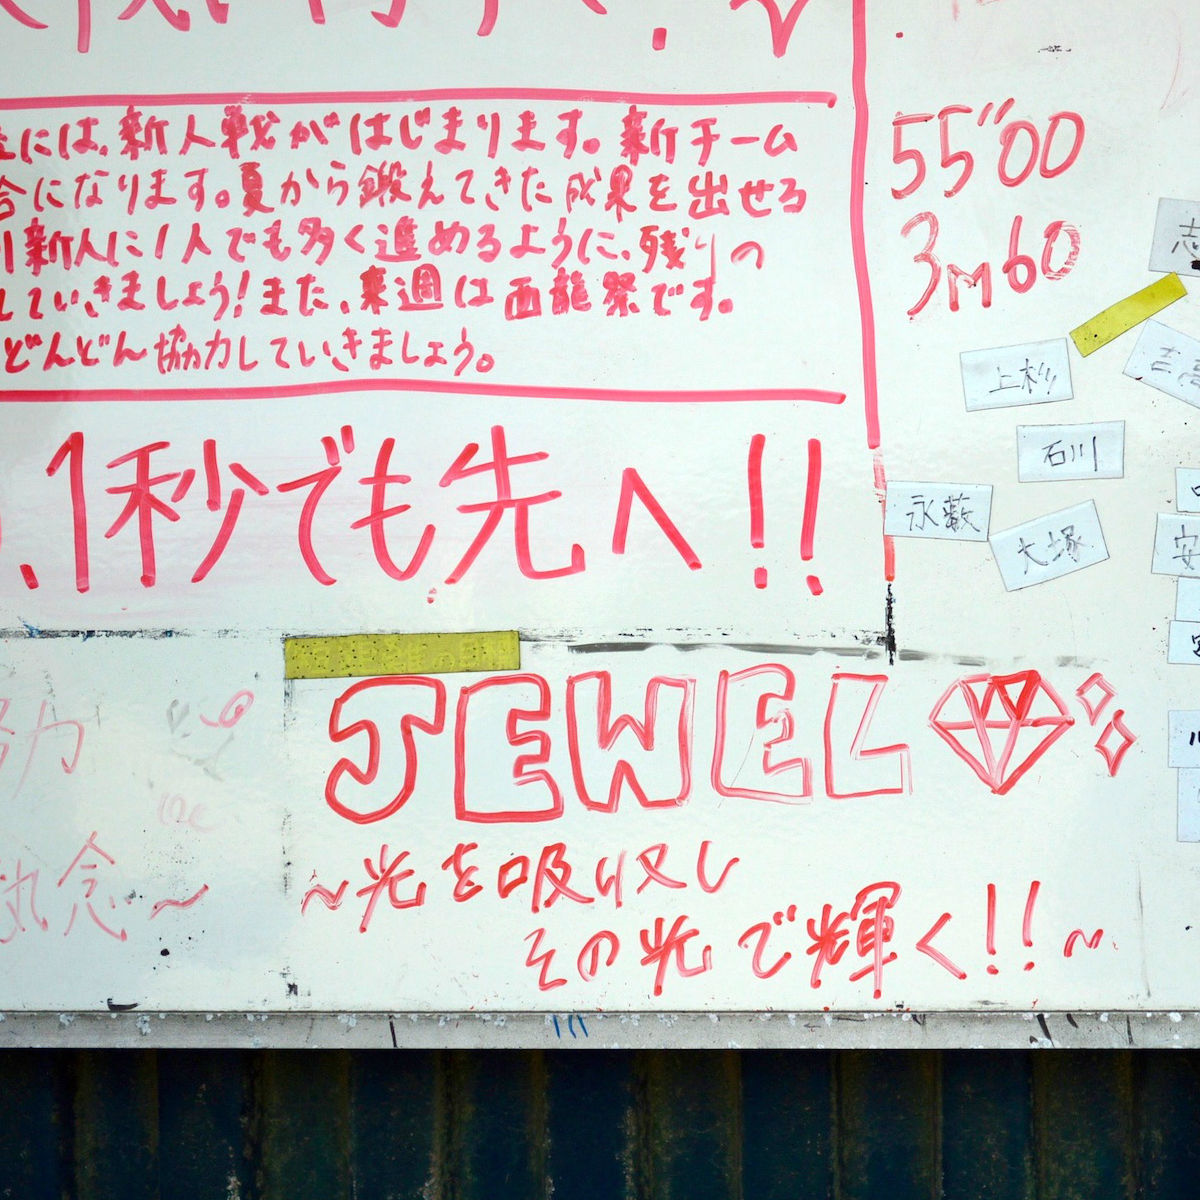 には、新人戦がはじまります。新チーム
合になります。夏から鍛えてきた成果を出せる
新人に1人でも多く進めるように、残りの
していきましょう!また、来週は西龍祭です。
どんどん協力していきましょう。
.1秒でも先へ!!
55"00
3M60
志
上杉
石川
永藪
大塚
安
JEWEL
〜光を吸収し
その光で輝く!!〜
努力
執念〜